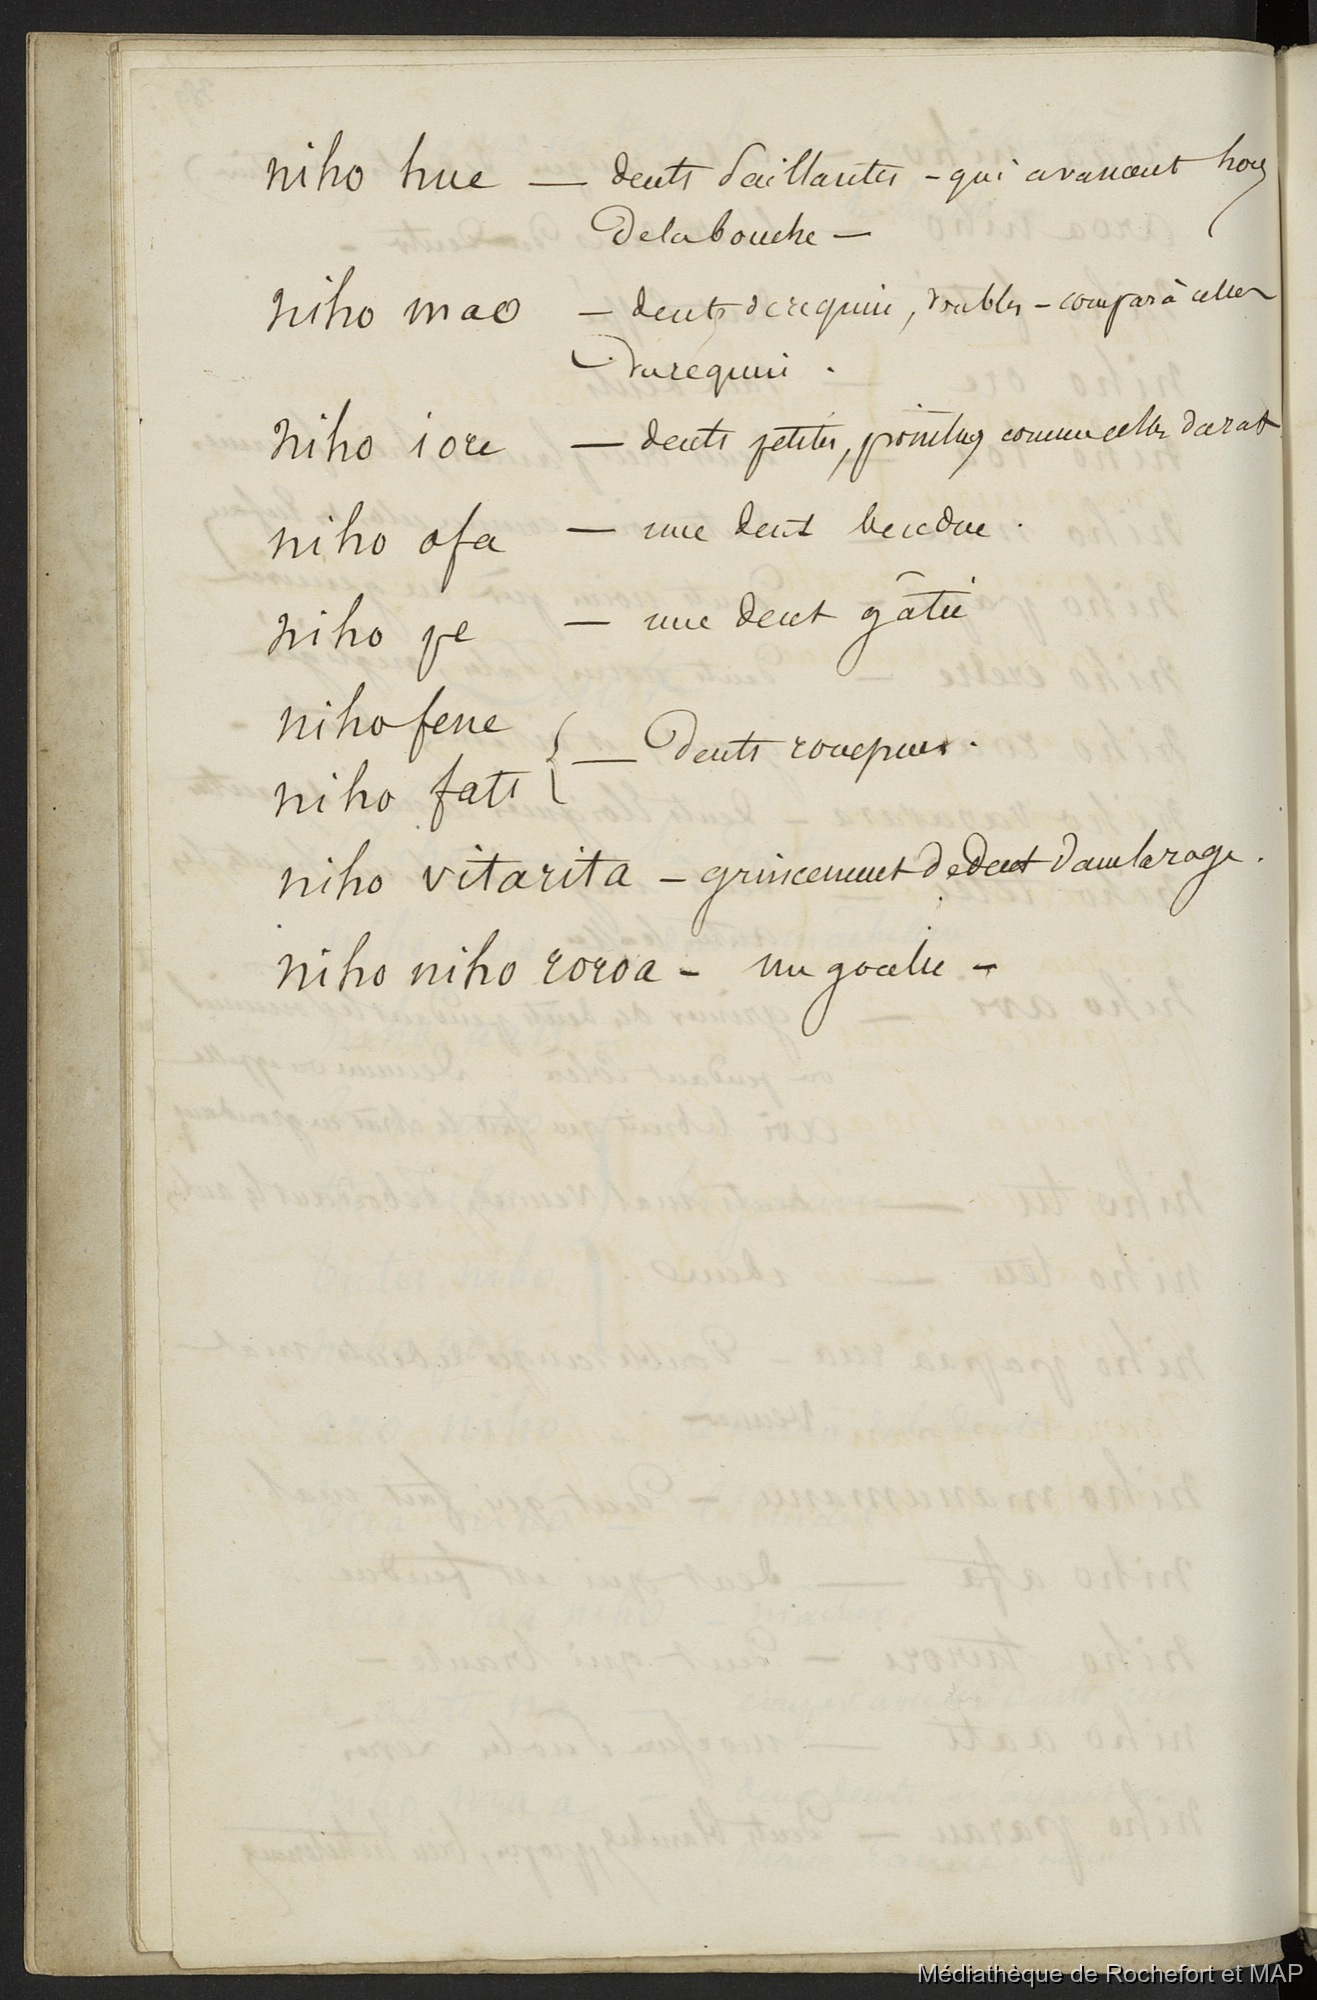 niho hue — dents saillantes - qui avancent hors
de la bouche —
niho mao — dents de requin, doubles - compar à celles
du requin .
niho iore — dents petites, pointues comme celles du rat
niho afa — une dent fendue .
niho pe — une dent gâtée
niho fene
niho fati } — Dents rompues .
niho vitarita - grincement de dent dans la rage .
niho niho roroa - une goëlie -
Médiathèque de Rochefort et MAP